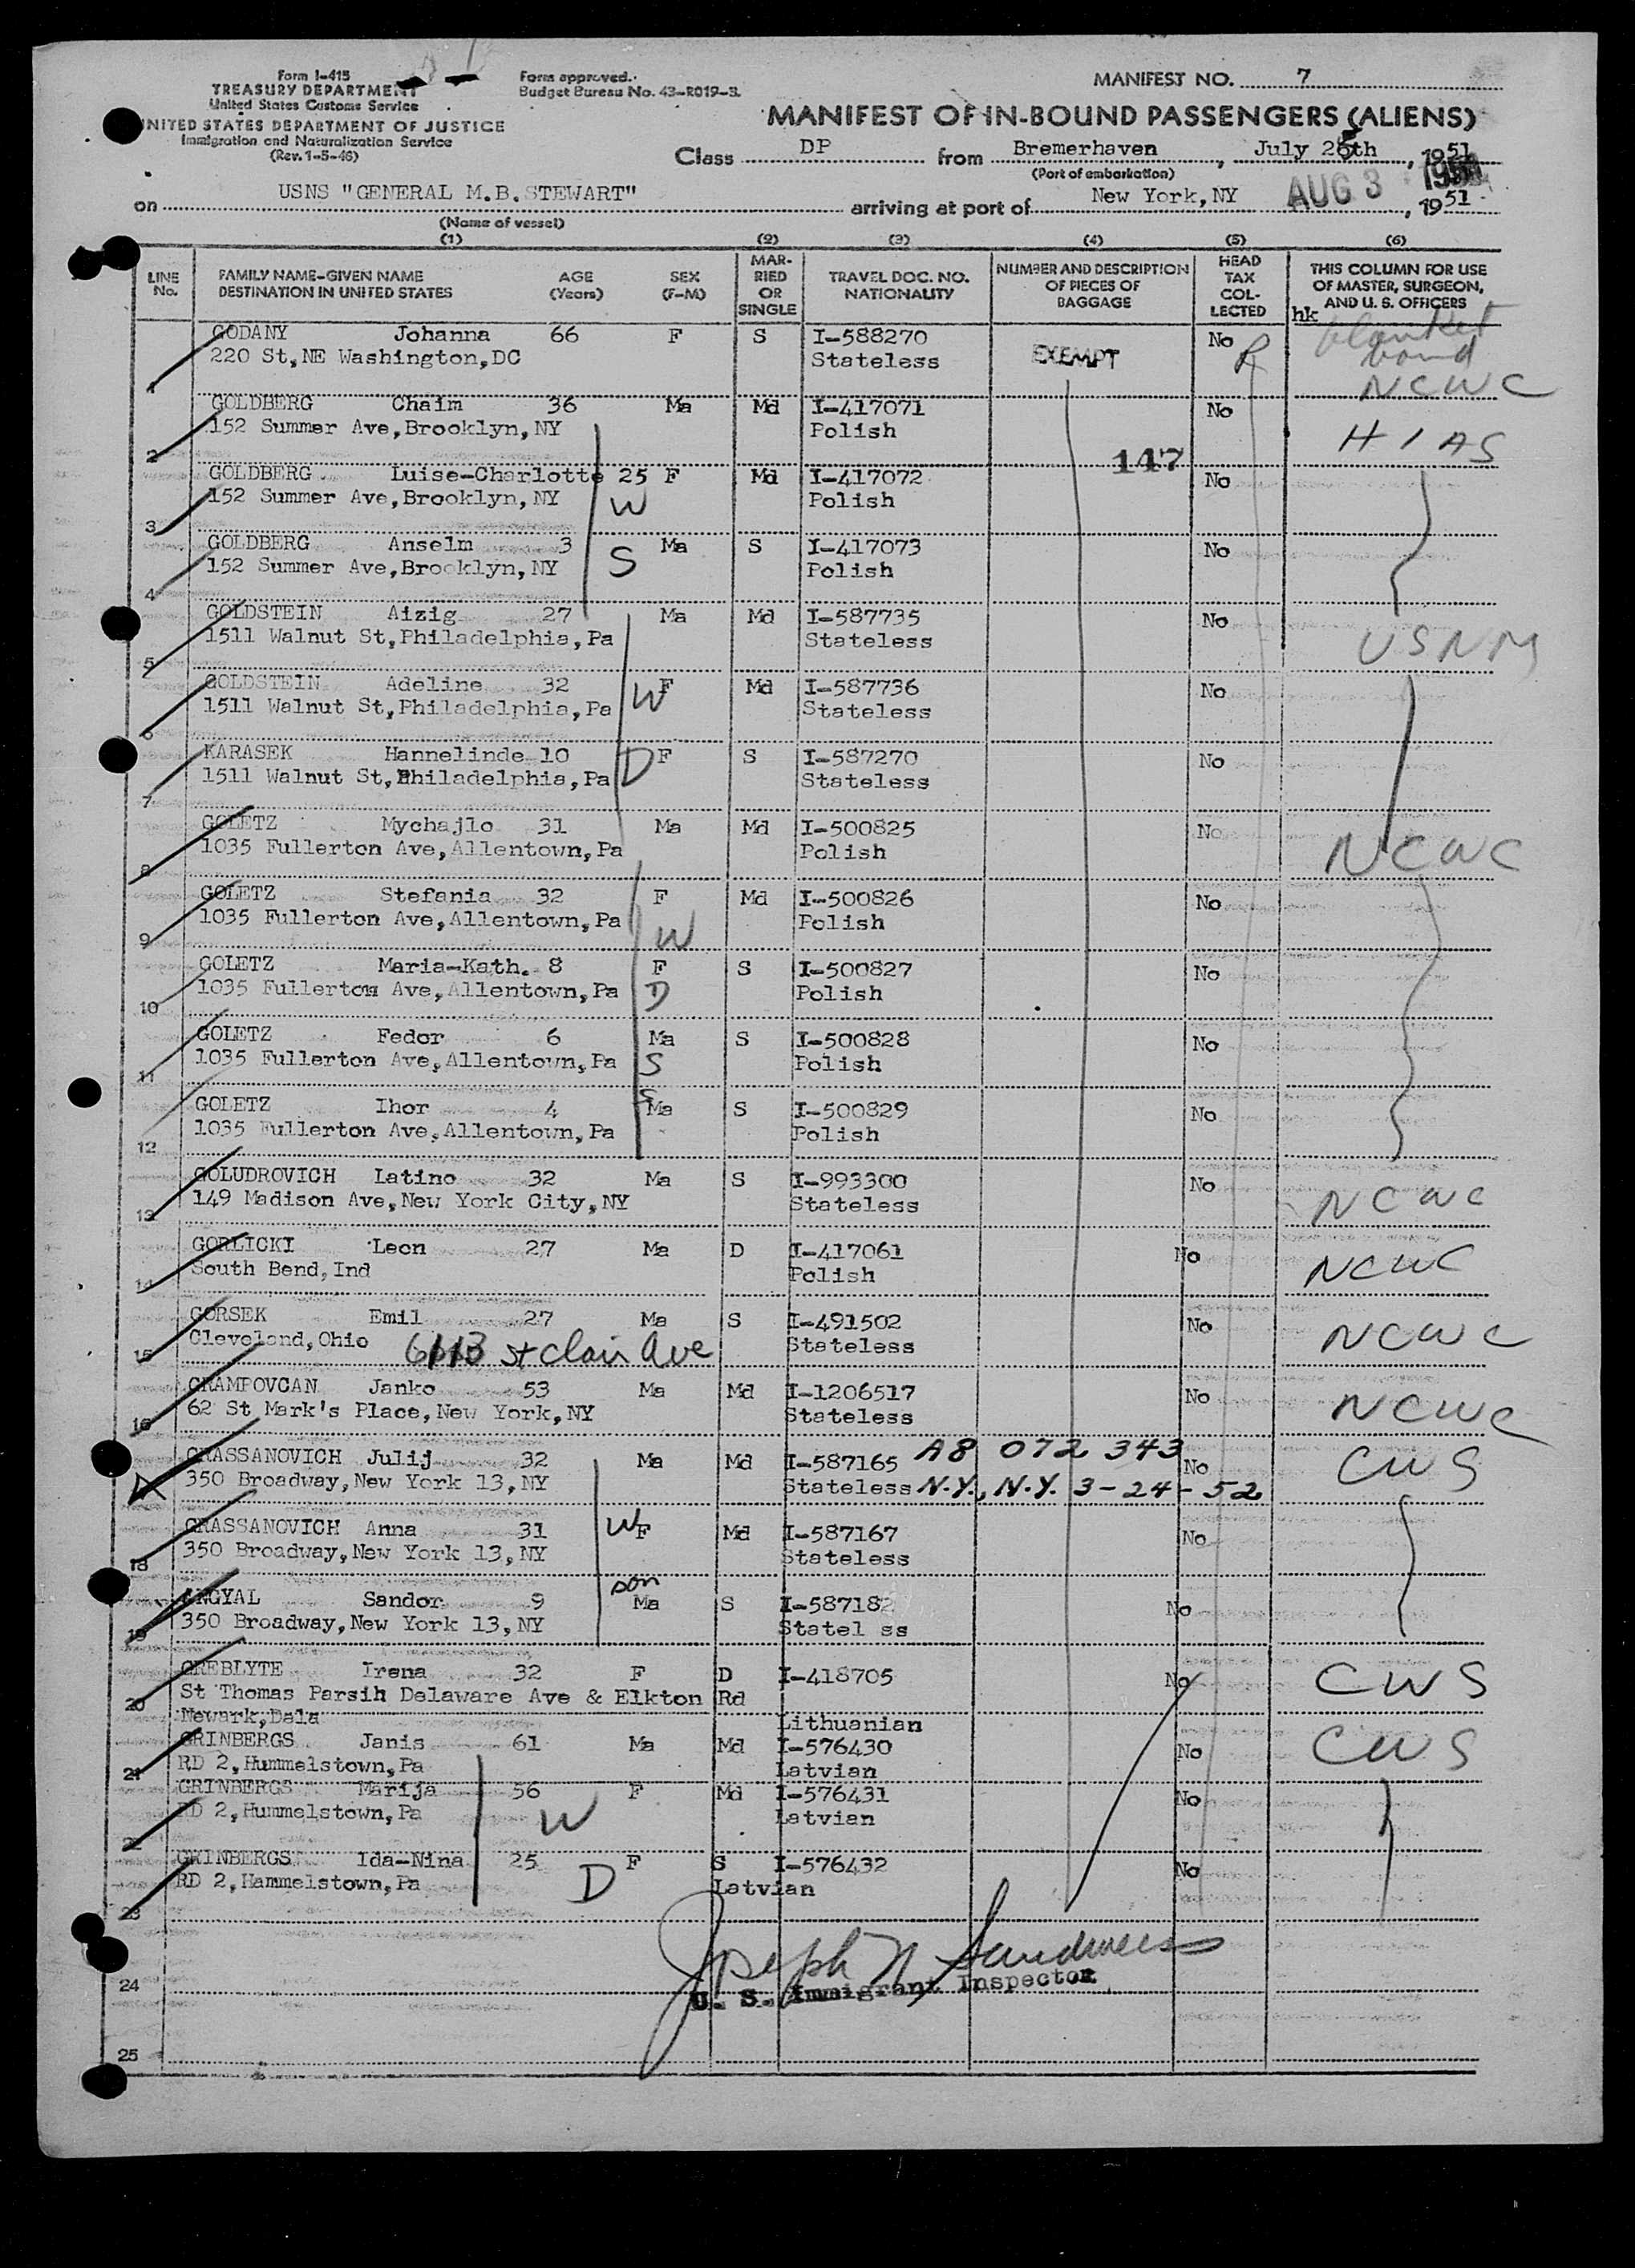 Form I-415
TREASURY DEPARTMENT
United States Customs Service
UNITED STATES DEPARTMENT OF JUSTICE
Immigration and Naturalization Service
(Rev. 1-5-46)
Form approved.
Budget Bureau No. 43-R019-3.
MANIFEST NO. 7
MANIFEST OF IN-BOUND PASSENGERS (ALIENS)
Class DP from Bremerhaven, July 26th, 1951
(Port of embarkation)
on USNS "GENERAL M.B.STEWART" arriving at port of New York,NY AUG 3 1951
(Name of vessel)
(1) (2) (3) (4) (5) (6)
LINE No. FAMILY NAME-GIVEN NAME DESTINATION IN UNITED STATES AGE (Years) SEX (F-M) MARRIED OR SINGLE TRAVEL DOC. NO. NATIONALITY NUMBER AND DESCRIPTION OF PIECES OF BAGGAGE HEAD TAX COLLECTED THIS COLUMN FOR USE OF MASTER, SURGEON, AND U. S. OFFICERS
hk
1 GODANY Johanna 66 F S I-588270 No blanket bond
220 St,NE Washington,DC Stateless EXEMPT NCWC
2 GOLDBERG Chaim 36 Ma Md I-417071 No
152 Summer Ave,Brooklyn,NY Polish HIAS
147
3 GOLDBERG Luise-Charlotte 25 F Md I-417072 No
152 Summer Ave,Brooklyn,NY W Polish
4 GOLDBERG Anselm 3 Ma S I-417073 No
152 Summer Ave,Brooklyn,NY S Polish
5 GOLDSTEIN Aizig 27 Ma Md I-587735 No
1511 Walnut St,Philadelphia,Pa Stateless USNM
6 GOLDSTEIN Adeline 32 W F Md I-587736 No
1511 Walnut St,Philadelphia,Pa Stateless
7 KARASEK Hannelinde 10 D F S I-587270 No
1511 Walnut St,Philadelphia,Pa Stateless
8 GOLETZ Mychajlo 31 Ma Md I-500825 No
1035 Fullerton Ave,Allentown,Pa Polish NCWC
9 GOLETZ Stefania 32 F Md I-500826 No
1035 Fullerton Ave,Allentown,Pa W Polish
10 GOLETZ Maria-Kath. 8 F S I-500827 No
1035 Fullerton Ave,Allentown,Pa D Polish
11 GOLETZ Fedor 6 Ma S I-500828 No
1035 Fullerton Ave,Allentown,Pa S Polish
12 GOLETZ Ihor 4 S Ma S I-500829 No
1035 Fullerton Ave,Allentown,Pa Polish
13 GOLUDROVICH Latino 32 Ma S I-993300 No
149 Madison Ave,New York City,NY Stateless NCWC
14 GORLICKI Leon 27 Ma D I-417061 No
South Bend,Ind Polish NCWC
15 GORSEK Emil 27 Ma S I-491502 No
Cleveland,Ohio 6113 St Clair Ave Stateless NCWC
16 GRAMPOVCAN Janko 53 Ma Md I-1206517 No
62 St Mark's Place,New York,NY Stateless NCWC
17 GRASSANOVICH Julij 32 Ma Md I-587165 A8 072 343 No CWS
350 Broadway,New York 13,NY Stateless N.Y., N.Y. 3-24-52
18 GRASSANOVICH Anna 31 W F Md I-587167 No
350 Broadway,New York 13,NY Stateless
19 ANGYAL Sandor 9 son Ma S I-587182 No
350 Broadway,New York 13,NY Statel ss
20 GREBLYTE Irena 32 F D I-418705 No CWS
St Thomas Parsih Delaware Ave & Elkton Rd
Newark,Dela Lithuanian
21 GRINBERGS Janis 61 Ma Md I-576430 No CWS
RD 2,Hummelstown,Pa Latvian
22 GRINBERGS Marija 56 F Md I-576431 No
RD 2,Hummelstown,Pa W Latvian
23 GRINBERGS Ida-Nina 25 F S I-576432 No
RD 2,Hammelstown,Pa D Latvian
Joseph N Sandweiss
24 U. S. Immigrant Inspector
25